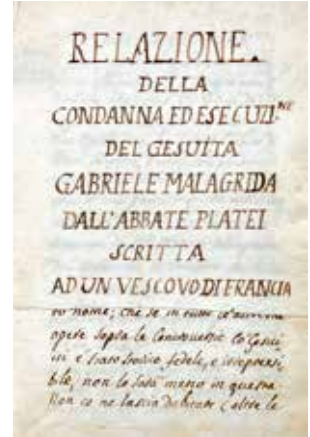 RELAZIONE.
DELLA
CONDANNA ED ESECUZI.NE
DEL GESUITA
GABRIELE MALAGRIDA
DALL'ABBATE PLATEI
SCRITTA
AD UN VESCOVO DI FRANCIA
ro nome; che se in tutte
opere sopra le Controversie Co' Gesui
ti è stato storico fedele, e irreprensi
ble, non lo sarà meno in questa
Non ce ne lascia dubitare